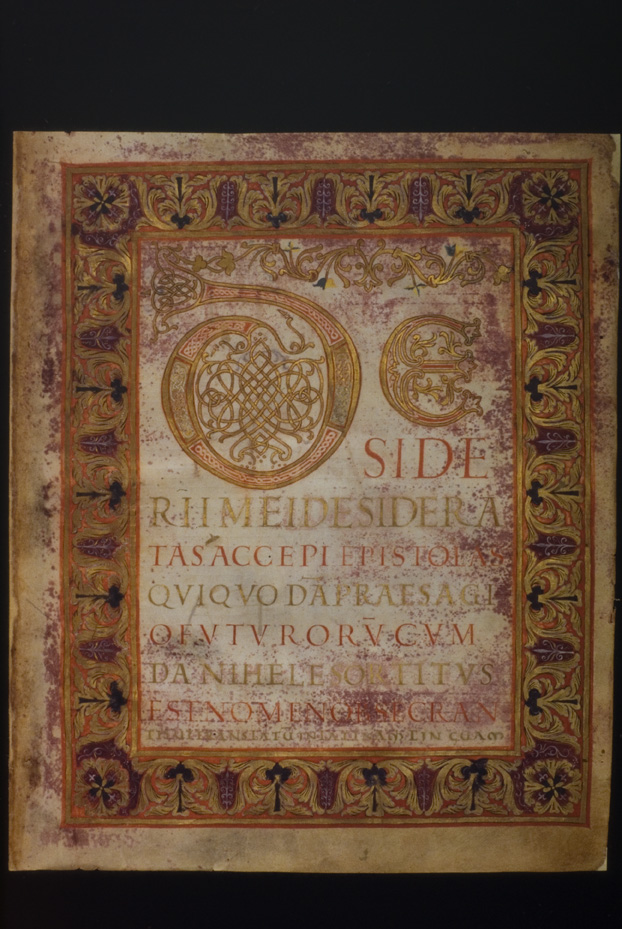 DE
SIDE
RII MEI DESIDERA
TAS ACCEPI EPISTOLAS
QVI QVODĀ PRAESAGI
O FVTVRORV̄ CVM
DANIHELE SORTITVS
EST NOMEN OBSECRAN